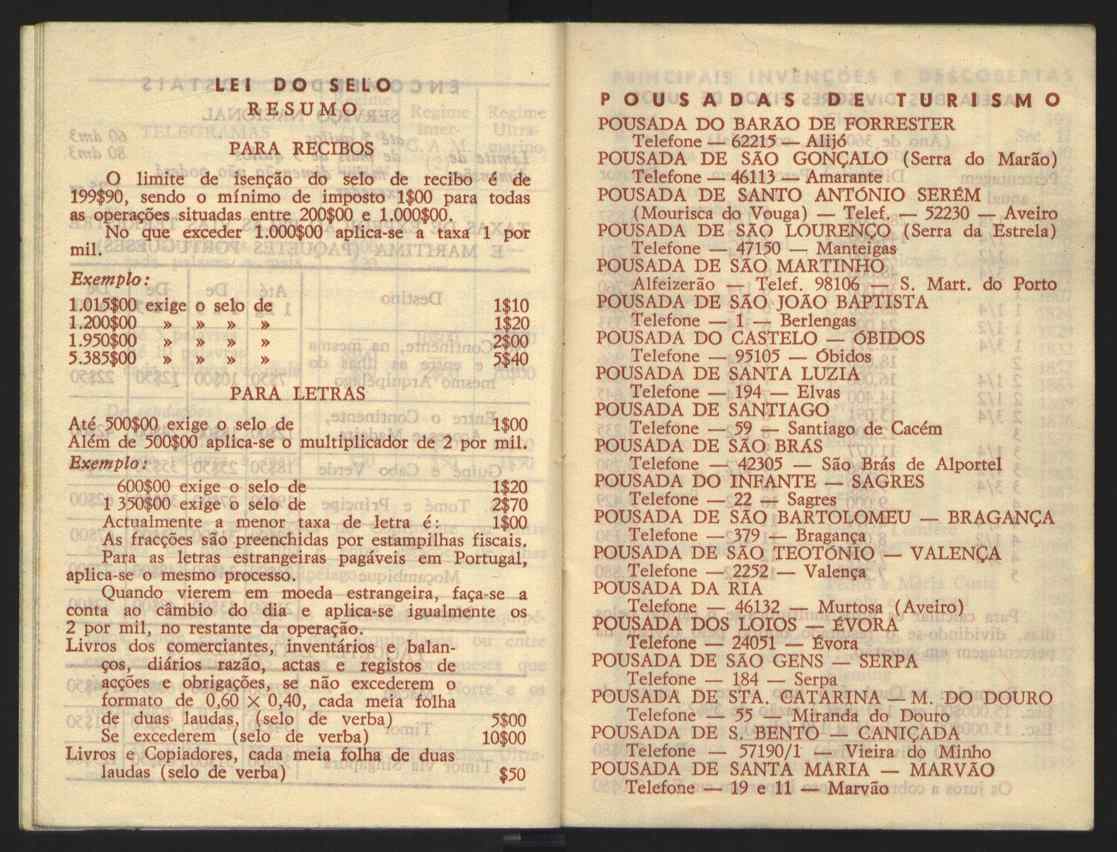 LEI DO SELO
RESUMO
PARA RECIBOS
O limite de isenção do selo de recibo é de
199$90, sendo o mínimo de imposto 1$00 para todas
as operações situadas entre 200$00 e 1.000$00.
No que exceder 1.000$00 aplica-se a taxa 1 por
mil.
Exemplo:
1.015$00 exige o selo de 1$10
1.200$00 » » » » 1$20
1.950$00 » » » » 2$00
5.385$00 » » » » 5$40
PARA LETRAS
Até 500$00 exige o selo de 1$00
Além de 500$00 aplica-se o multiplicador de 2 por mil.
Exemplo:
600$00 exige o selo de 1$20
1 350$00 exige o selo de 2$70
Actualmente a menor taxa de letra é: 1$00
As fracções são preenchidas por estampilhas fiscais.
Para as letras estrangeiras pagáveis em Portugal,
aplica-se o mesmo processo.
Quando vierem em moeda estrangeira, faça-se a
conta ao câmbio do dia e aplica-se igualmente os
2 por mil, no restante da operação.
Livros dos comerciantes, inventários e balan-
ços, diários razão, actas e registos de
acções e obrigações, se não excederem o
formato de 0,60 × 0,40, cada meia folha
de duas laudas, (selo de verba) 5$00
Se excederem (selo de verba) 10$00
Livros e Copiadores, cada meia folha de duas
laudas (selo de verba) $50
POUSADAS DE TURISMO
POUSADA DO BARÃO DE FORRESTER
Telefone — 62215 — Alijó
POUSADA DE SÃO GONÇALO (Serra do Marão)
Telefone — 46113 — Amarante
POUSADA DE SANTO ANTÓNIO SERÉM
(Mourisca do Vouga) — Telef. — 52230 — Aveiro
POUSADA DE SÃO LOURENÇO (Serra da Estrela)
Telefone — 47150 — Manteigas
POUSADA DE SÃO MARTINHO
Alfeizerão — Telef. 98106 — S. Mart. do Porto
POUSADA DE SÃO JOÃO BAPTISTA
Telefone — 1 — Berlengas
POUSADA DO CASTELO — ÓBIDOS
Telefone — 95105 — Óbidos
POUSADA DE SANTA LUZIA
Telefone — 194 — Elvas
POUSADA DE SANTIAGO
Telefone — 59 — Santiago de Cacém
POUSADA DE SÃO BRÁS
Telefone — 42305 — São Brás de Alportel
POUSADA DO INFANTE — SAGRES
Telefone — 22 — Sagres
POUSADA DE SÃO BARTOLOMEU — BRAGANÇA
Telefone — 379 — Bragança
POUSADA DE SÃO TEOTÓNIO — VALENÇA
Telefone — 2252 — Valença
POUSADA DA RIA
Telefone — 46132 — Murtosa (Aveiro)
POUSADA DOS LOIOS — ÉVORA
Telefone — 24051 — Évora
POUSADA DE SÃO GENS — SERPA
Telefone — 184 — Serpa
POUSADA DE STA. CATARINA — M. DO DOURO
Telefone — 55 — Miranda do Douro
POUSADA DE S. BENTO — CANIÇADA
Telefone — 57190/1 — Vieira do Minho
POUSADA DE SANTA MARIA — MARVÃO
Telefone — 19 e 11 — Marvão